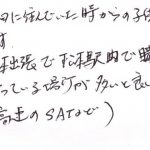 に住んでいた時からの子
す。
出張で松本駅内で購
っている場所が多いと良い
高速のSAなど)